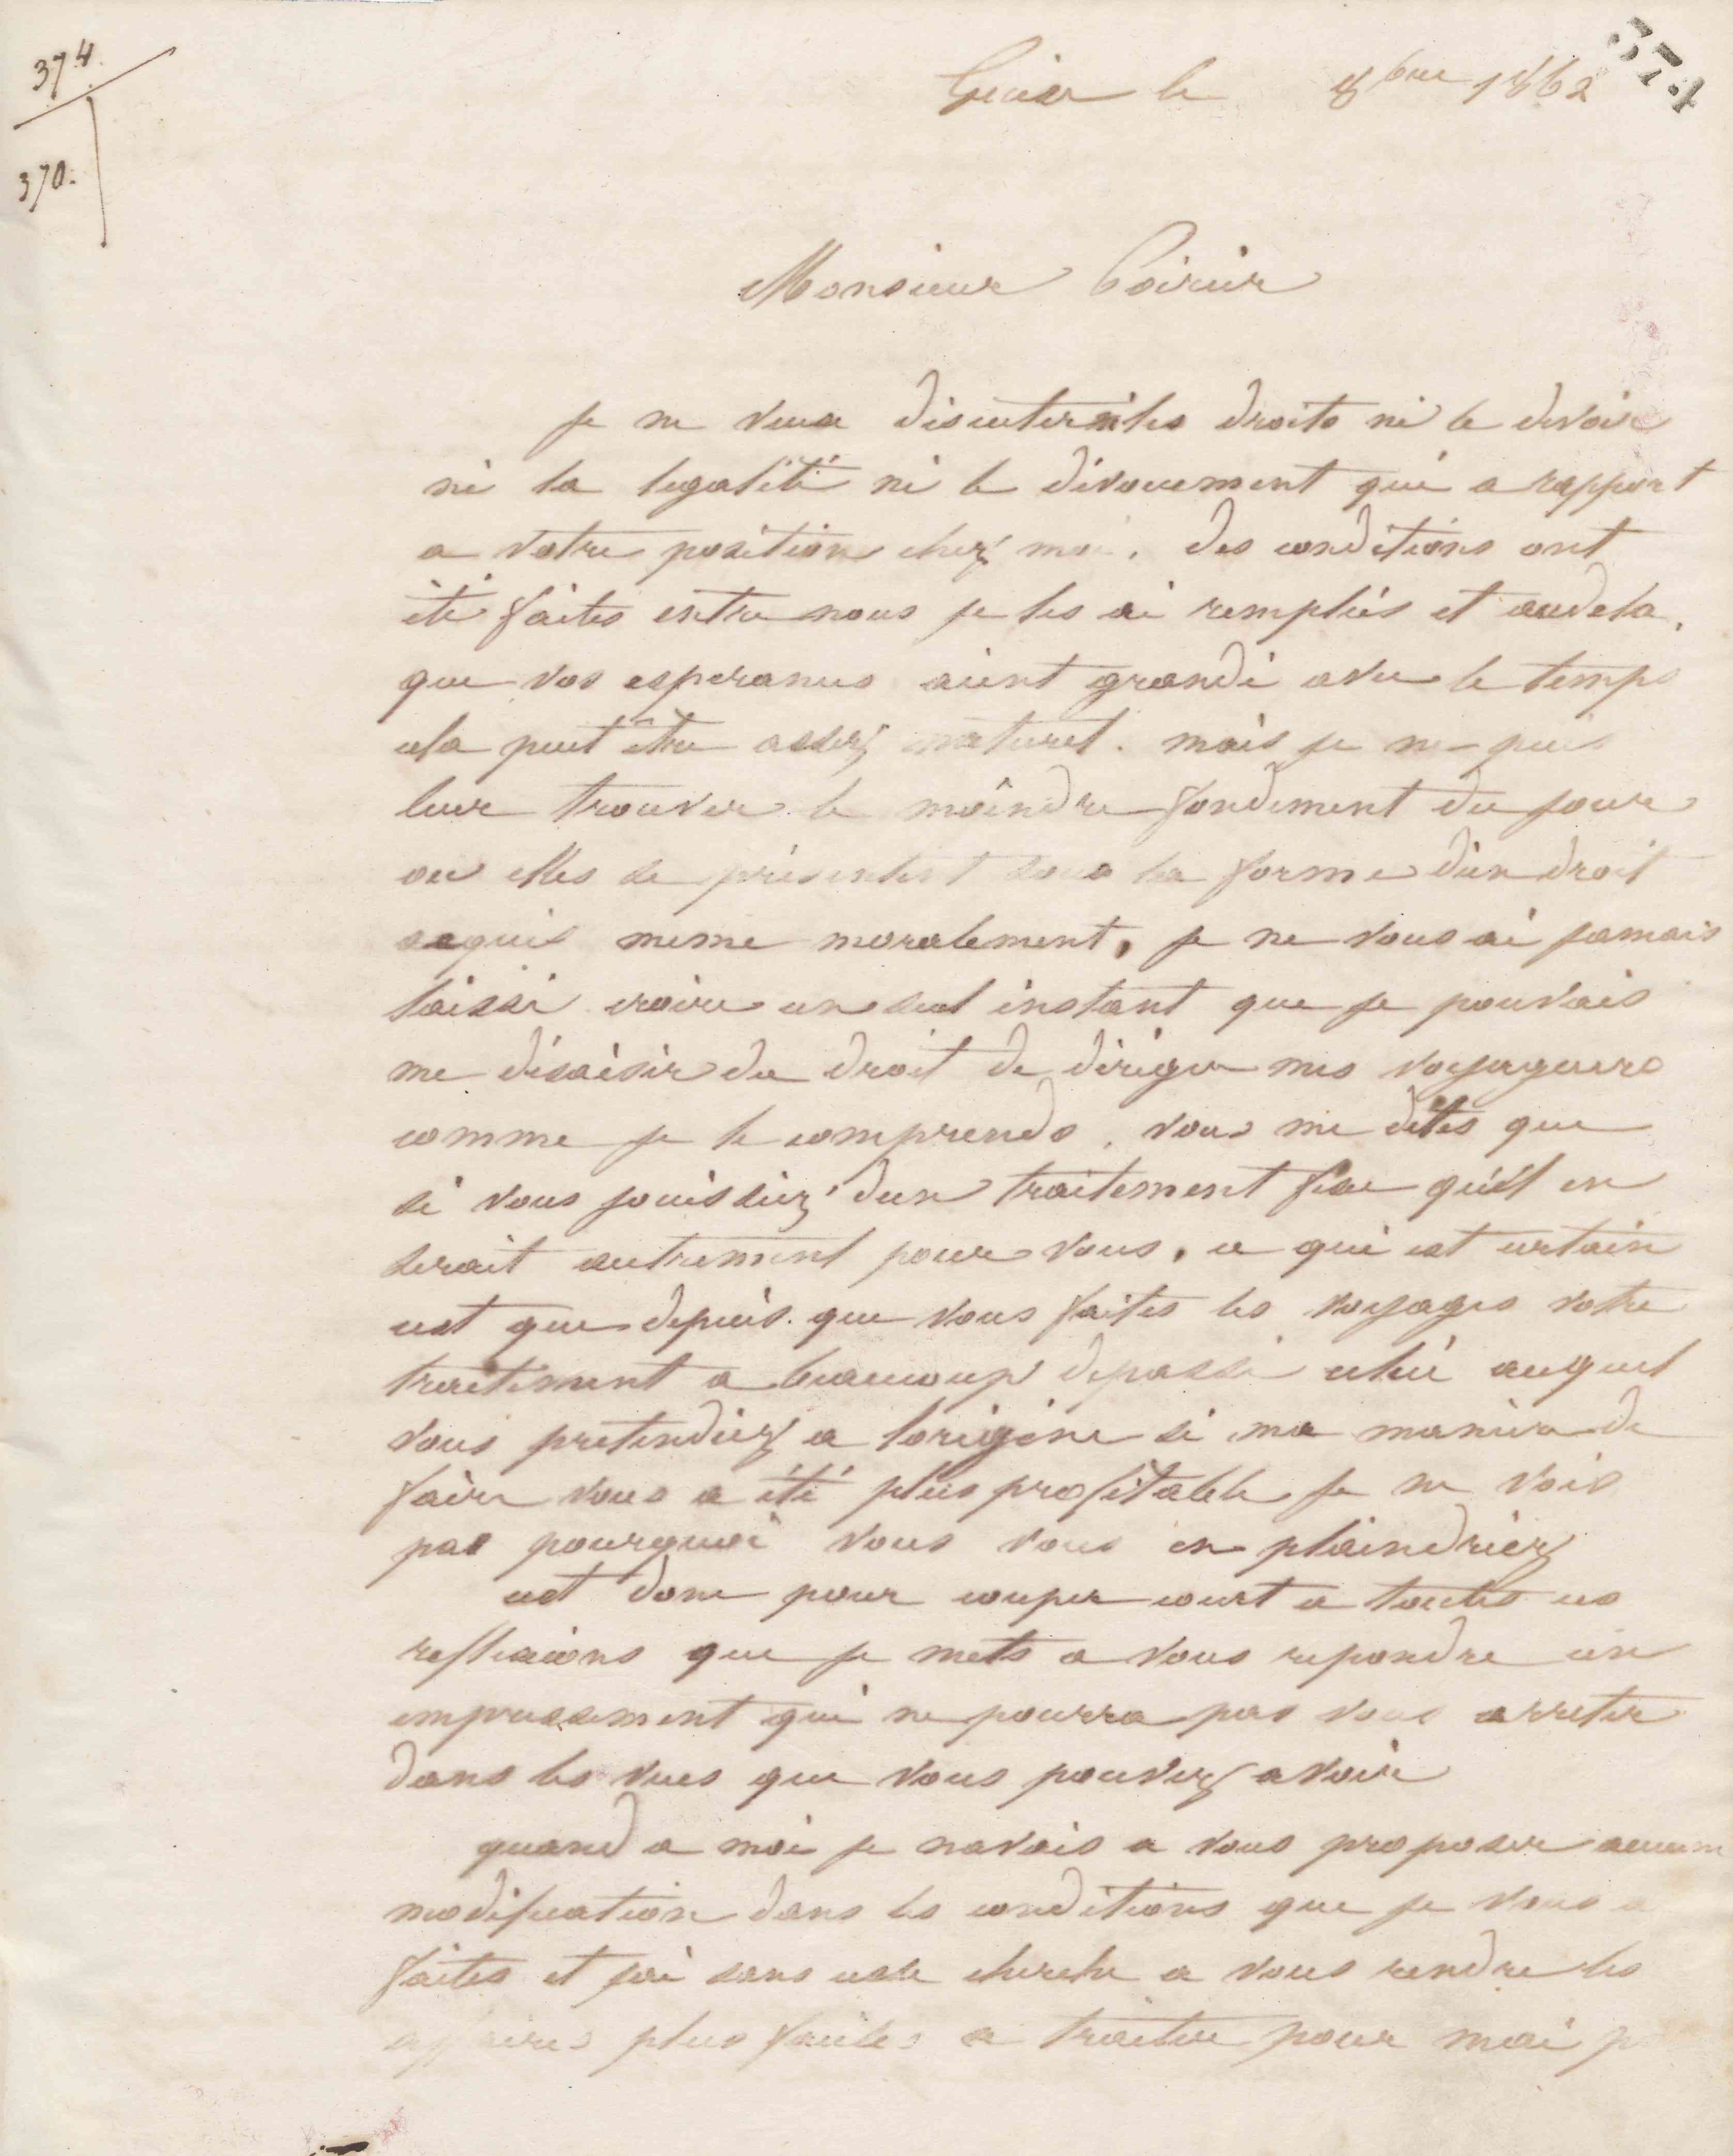 374.
370.
374
Guise le 8bre 1862
Monsieur Poirier
je ne veux discuter ni les droits ni le devoir
ni la legalité ni le dévouement qui a rapport
a votre position chez moi. des conditions ont
été faites entre nous je les ai remplies et audela.
que vos esperances aient grandi avec le temps
cela peut être assez naturel. mais je ne puis
leur trouver le moindre fondement du jour
ou elles se présentent sous la forme d'un droit
acquis meme moralement, je ne vous ai jamais
laissé croire un seul instant que je pouvais
me désaisir du droit de diriger mes voyageurs
comme je le comprends. vous me dites que
si vous jouissiez d'un traitement fixe qu'il en
serait autrement pour vous, ce qui est certain
cest que depuis que vous faites les voyages votre
traitement a beaucoup depassé celui auquel
vous pretendiez a lorigine si ma maniere de
faire vous a été plus profitable je ne vois
pas pourquoi vous vous en plaindriez
cest donc pour couper court a toutes ces
reflexions que je mets a vous repondre un
empressement qui ne pourra pas vous arreter
dans les vues que vous pouvez avoir
quand a moi je navais a vous proposer aucune
modification dans les conditions que je vous a
faites et jai sans cesse cherche a vous rendre les
affaires plus faciles a traiter pour moi p